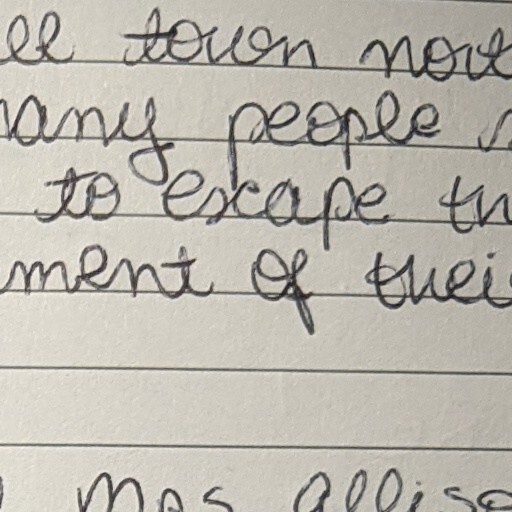 ll town not
any people
to escape th
ment of thei
mos alliso